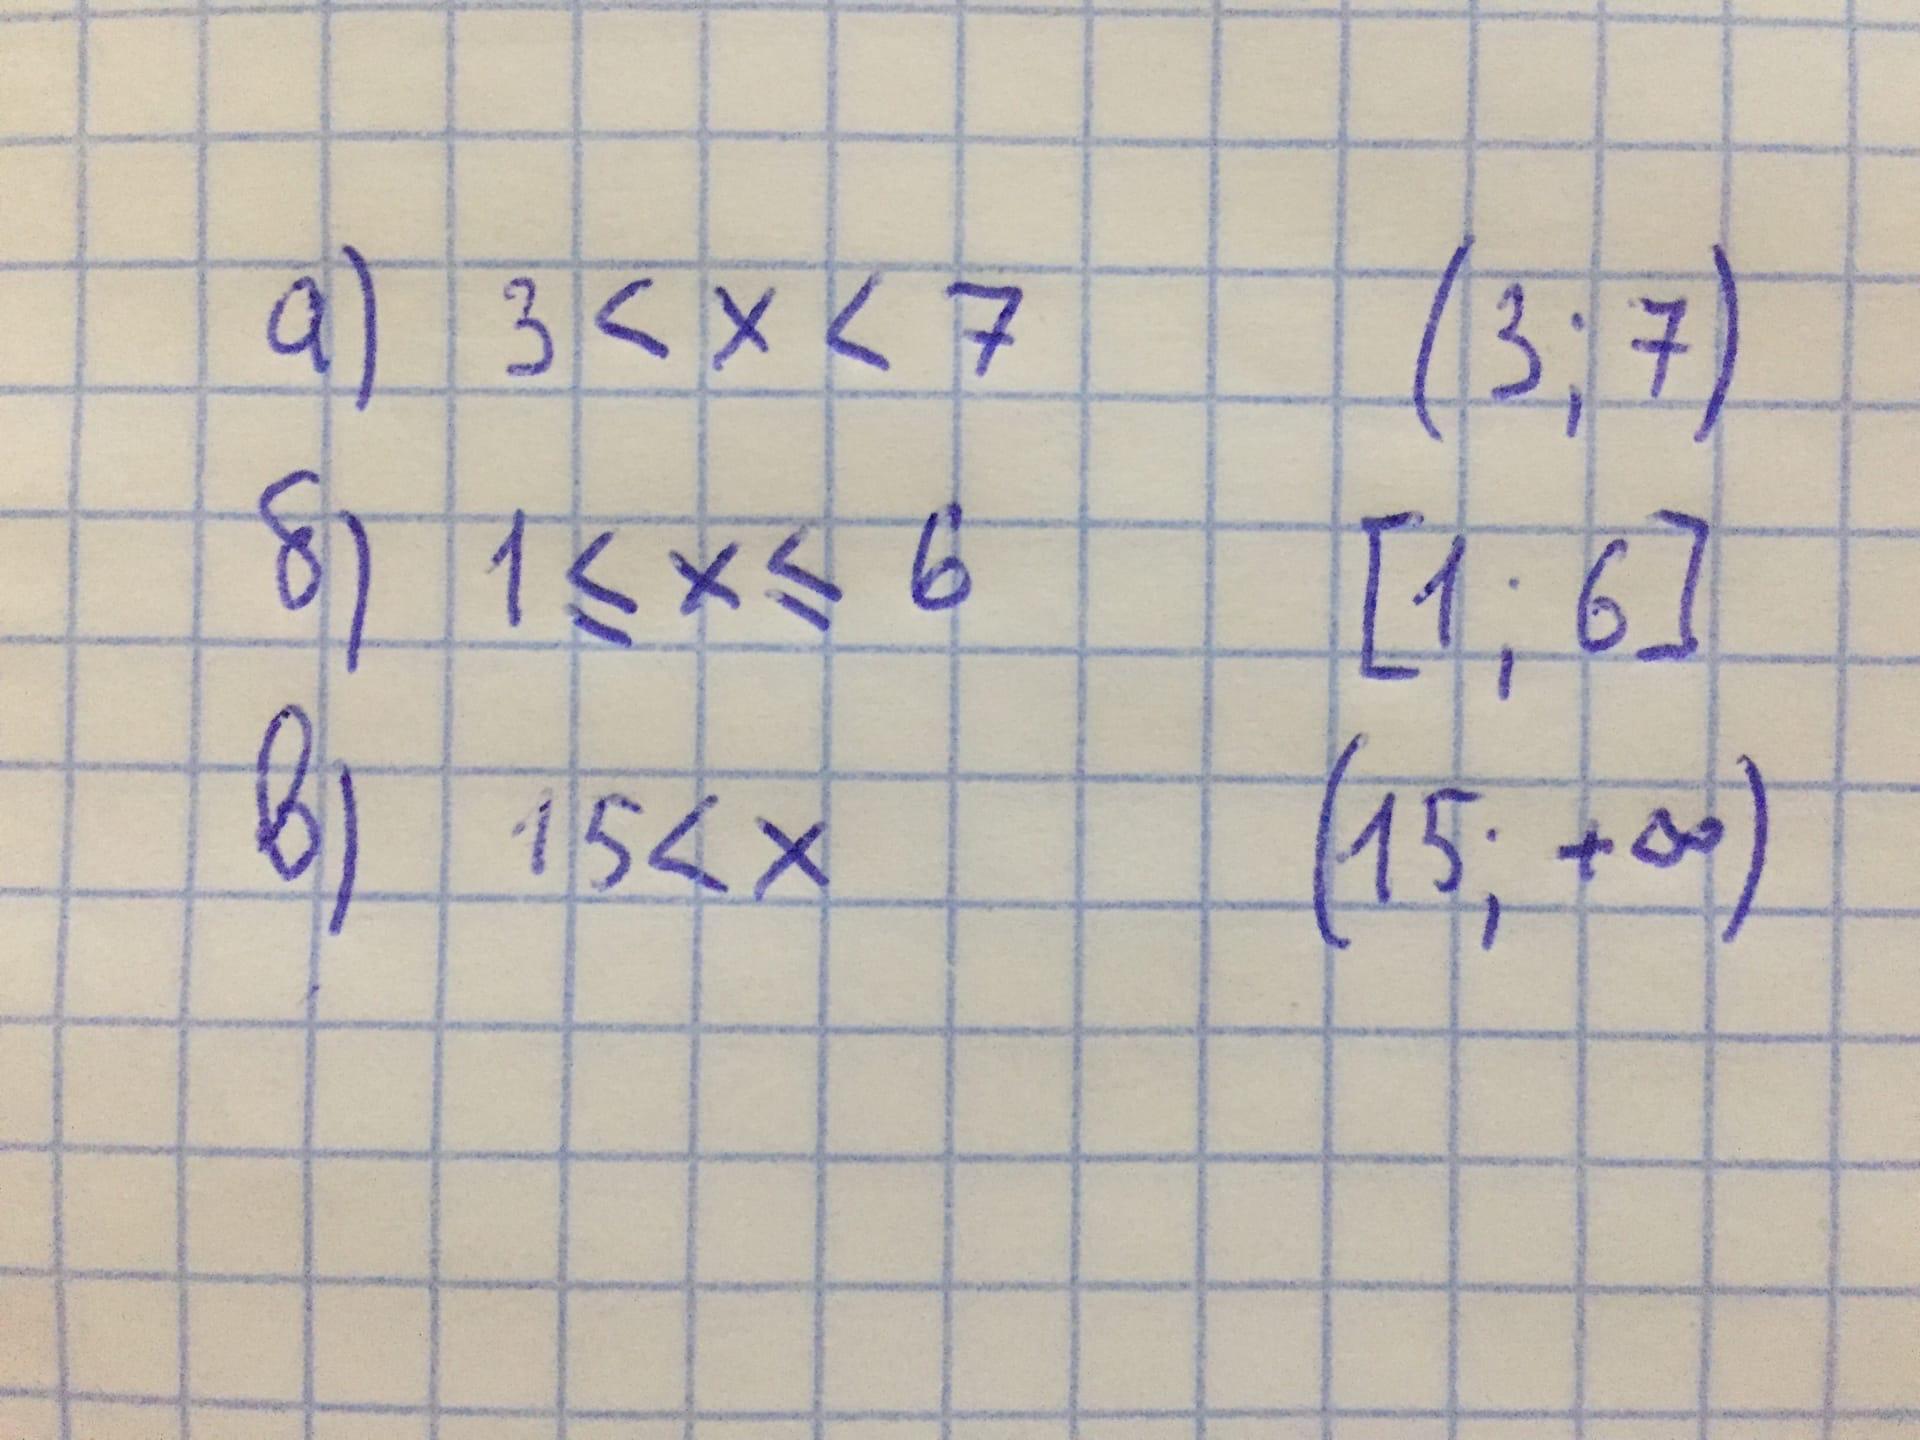 а) 3 < x < 7 (3; 7)
б) 1 ≤ x ≤ 6 [1; 6]
в) 15 < x (15; +∞)